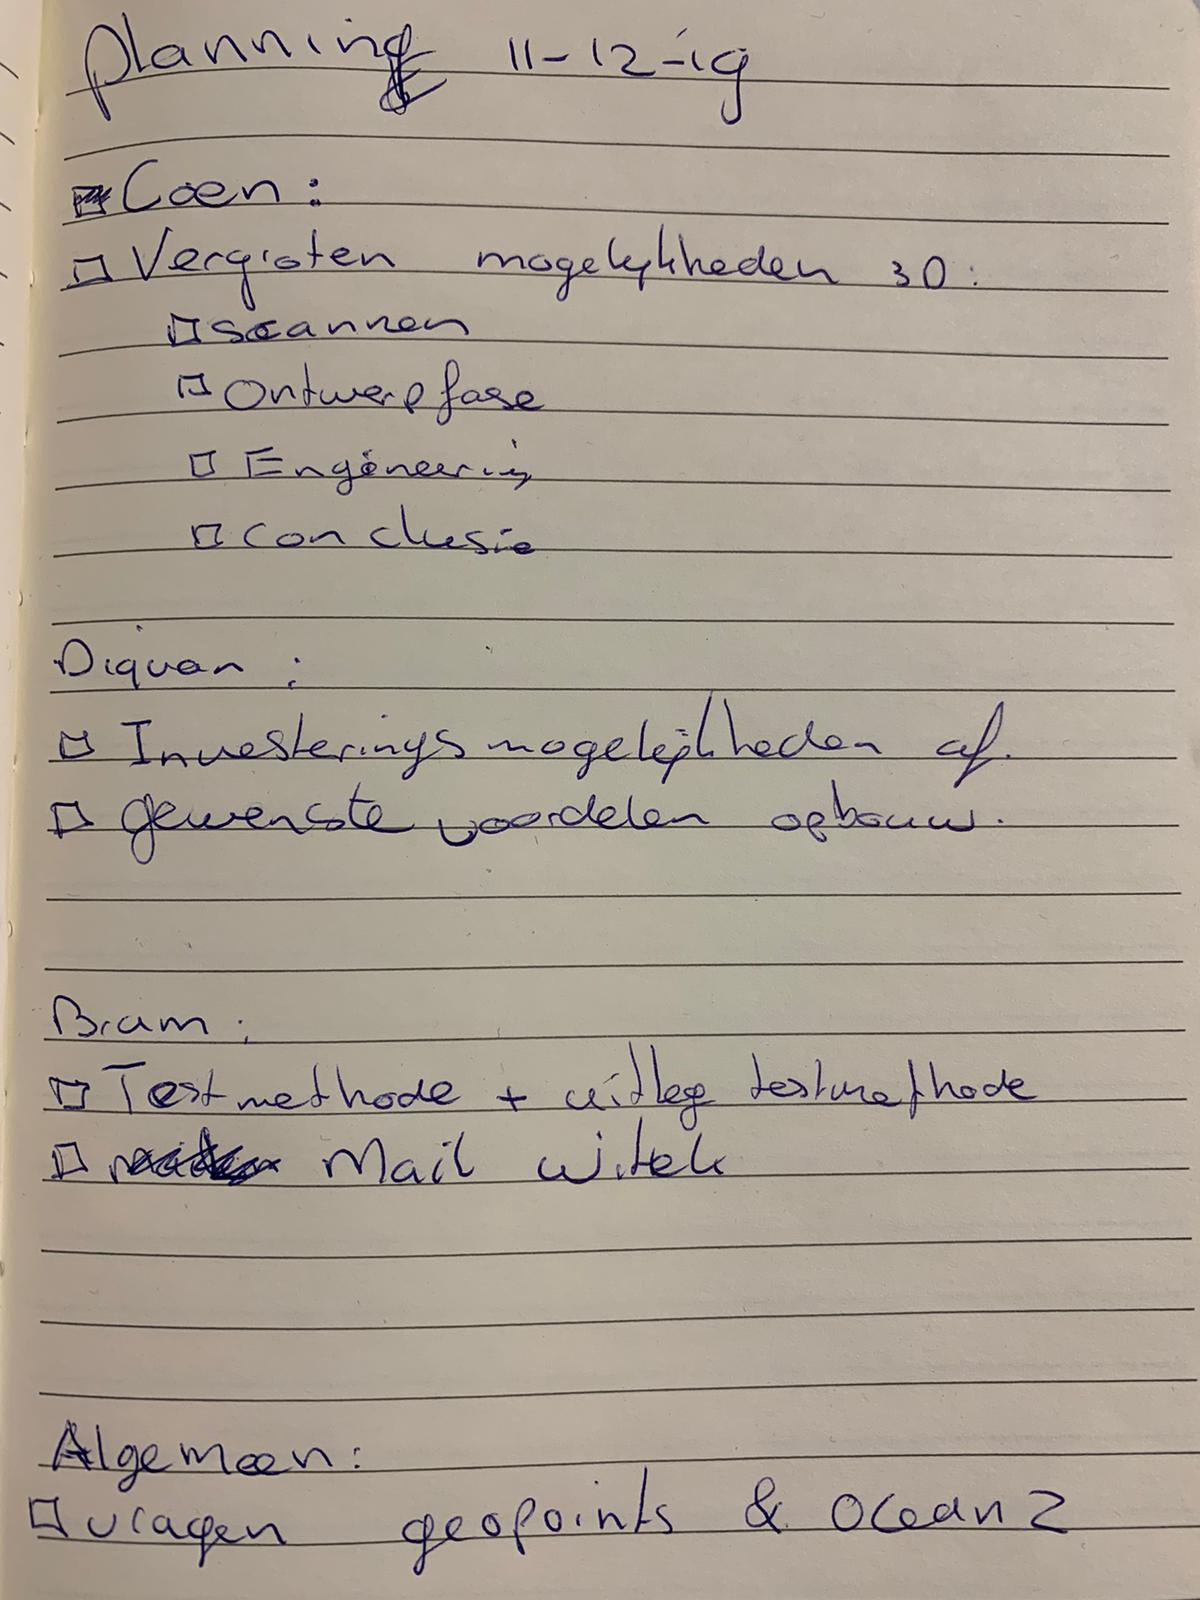 planning 11-12-19
Coen:
Vergroten mogelijkheden 3D:
scannen
Ontwerpfase
Engineering
Conclusie
Diquan:
Investeringsmogelijkheden af.
gewenste voordelen opbouw.
Bram:
Testmethode + uitleg testmethode
Mail witek
Algemeen:
vragen geopoints & Ocean 2